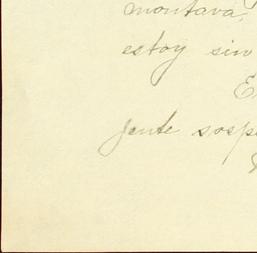 montava,
estoy sin
E
jente sosp